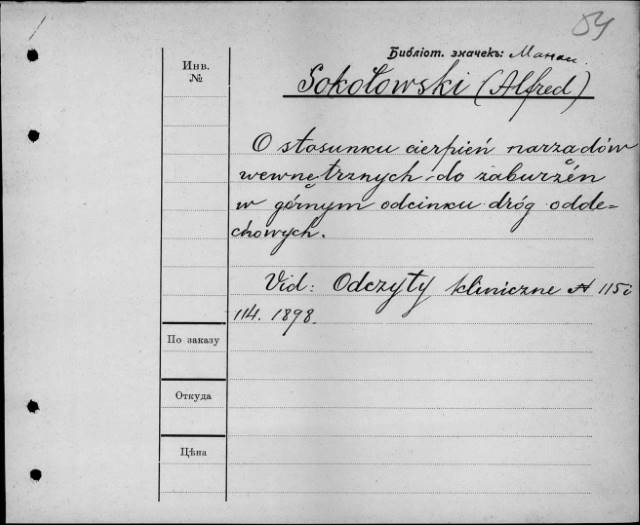 84
Библіот. значекъ:
Инв.
№
Sokołowski (Alfred)
O stosunku cierpień narządów
wewnętrznych do zaburzeń
w górnym odcinku dróg odde-
chowych.
Vid: Odczyty kliniczne № 115 i
114. 1898.
По заказу
Откуда
Цѣна